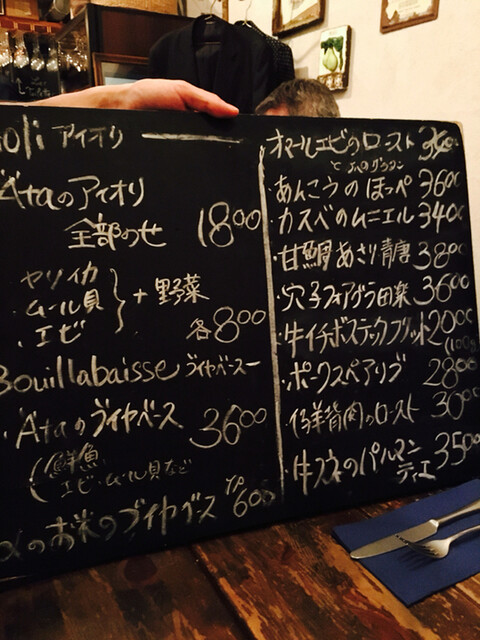 アイオリ
Ataのアイオリ
全部のせ 1800
ヤリイカ
ムール貝
エビ
+野菜
各800
Bouillabaisse ブイヤベース
・Ataのブイヤベース 3600
(鮮魚
エビ・ムール貝など
のお米のブイヤベース 600
オマールエビのロースト
・あんこうのほっぺ 3600
・カスベのムニエル 3400
・甘鯛あさり青唐 3800
・穴子フォアグラ田楽 3600
・牛イチボステックフリット 2000
(100g)
・ポークスペアリブ 2800
・仔羊背肉のロースト 3000
・牛スネのパルマンティエ 3500